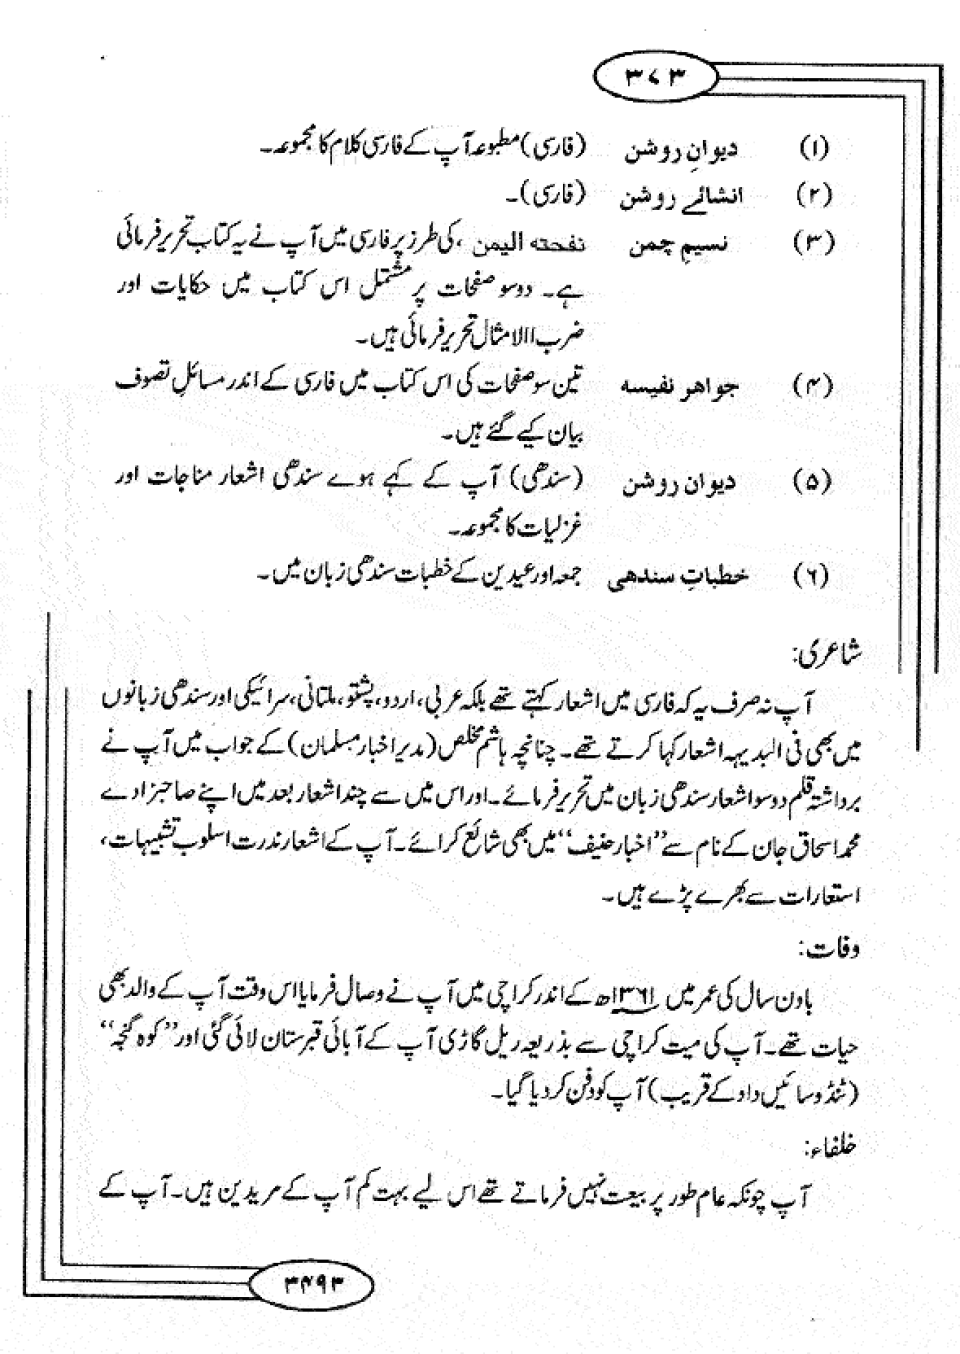 ۳۷۳
(۱) دیوانِ روشن (فارسی) مطبوعہ آپ کے فارسی کلام کا مجموعہ۔
(۲) انشائے روشن (فارسی)۔
(۳) نسیمِ چمن نفحتہ الیمن ، کی طرز پر فارسی میں آپ نے یہ کتاب تحریر فرمائی
ہے۔ دو سو صفحات پر مشتمل اس کتاب میں حکایات اور
ضرب االامثال تحریر فرمائی ہیں۔
(۴) جواهر نفیسه تین سو صفحات کی اس کتاب میں فارسی کے اندر مسائلِ تصوف
بیان کیے گئے ہیں۔
(۵) دیوان روشن (سندھی) آپ کے کہے ہوے سندھی اشعار مناجات اور
غزلیات کا مجموعہ۔
(۶) خطباتِ سندھی جمعہ اور عیدین کے خطبات سندھی زبان میں۔
شاعری:
آپ نہ صرف یہ کہ فارسی میں اشعار کہتے تھے بلکہ عربی، اردو، پشتو، ملتانی، سرائیکی اور سندھی زبانوں
میں بھی فی البدیہہ اشعار کہا کرتے تھے۔ چنانچہ ہاشم مخلص (مدیر اخبار مسلمان) کے جواب میں آپ نے
برداشتہ قلم دو سو اشعار سندھی زبان میں تحریر فرمائے۔ اور اس میں سے چند اشعار بعد میں اپنے صاحبزادے
محمد اسحاق جان کے نام سے ’’اخبار حنیف‘‘ میں بھی شائع کرائے۔ آپ کے اشعار ندرت اسلوب تشبیہات،
استعارات سے بھرے پڑے ہیں۔
وفات:
باون سال کی عمر میں ۱۳۶۱ھ کے اندر کراچی میں آپ نے وصال فرمایا اس وقت آپ کے والد بھی
حیات تھے۔ آپ کی میت کراچی سے بذریعہ ریل گاڑی آپ کے آبائی قبرستان لائی گئی اور ’’کوہ گنجہ‘‘
(ٹنڈو سائیں داد کے قریب) آپ کو دفن کر دیا گیا۔
خلفاء:
آپ چونکہ عام طور پر بیعت نہیں فرماتے تھے اس لیے بہت کم آپ کے مریدین ہیں۔ آپ کے
۳۴۹۳